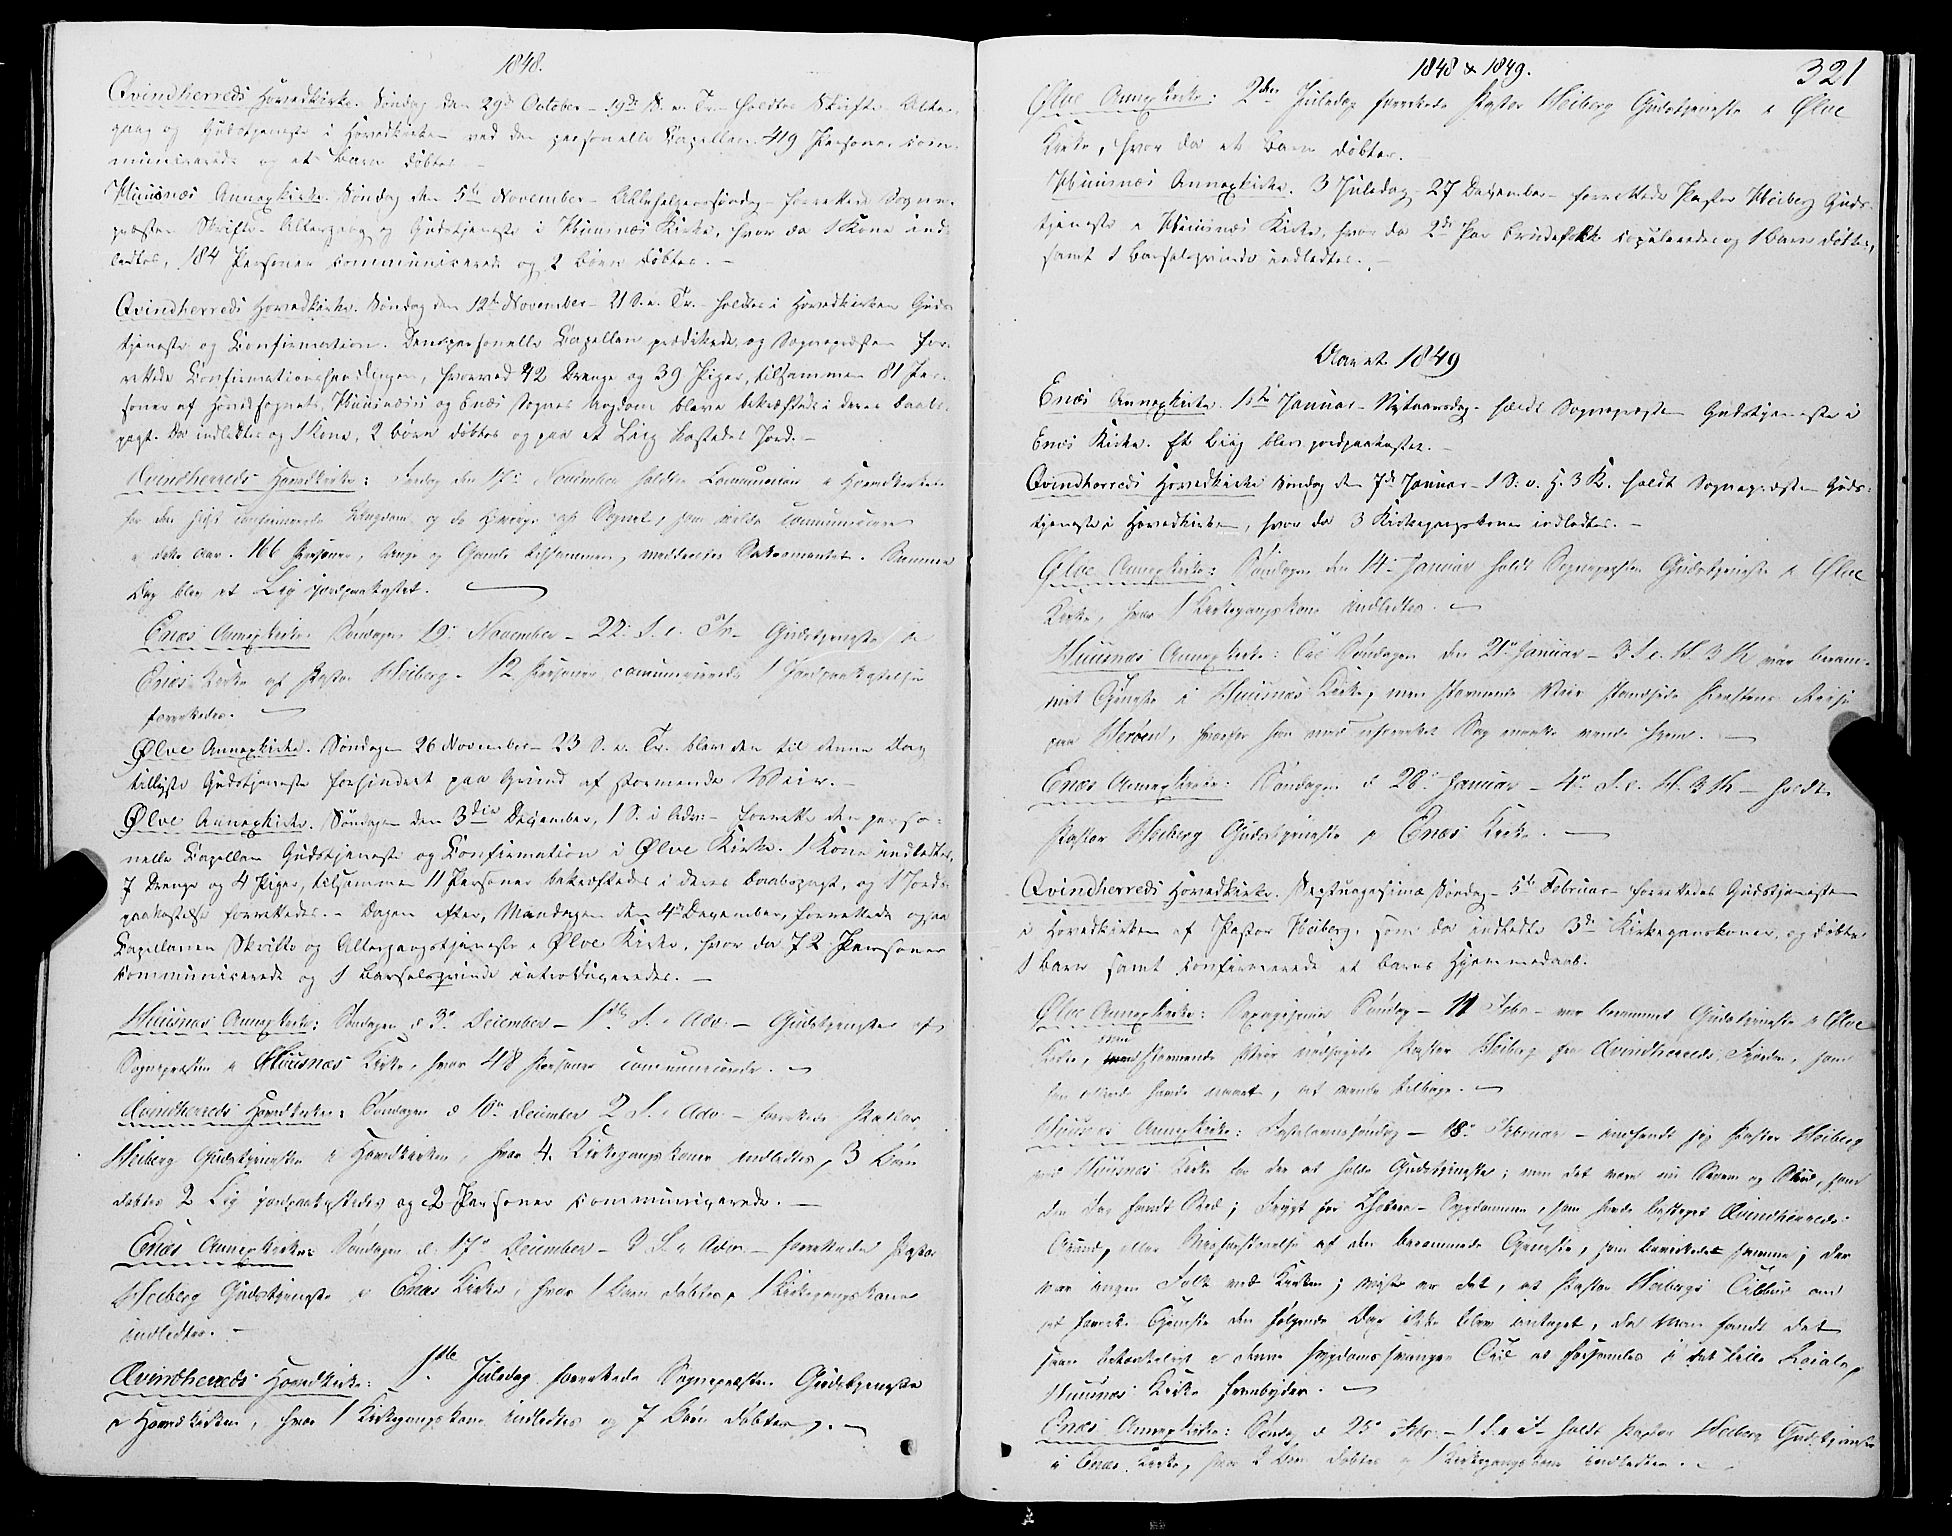 1848.
Qvindherreds Hovedkirke. Søndag den 29de October - 19de S. e. Tr. holdtes Skrifte-Alter-
gang og Gudstjeneste i Hovedkirken ved den personelle Capellan. 49 Personer com-
municerede og et Barn døbtes. -
Huusnæs Annexkirke. Søndag den 5te November - Allehelgenssøndag - forrettede Sogne-
præsten Skrifte-Altergang og Gudstjeneste i Huusnæs Kirke, hvor da 1 Kone ind-
ledtes, 184 Personer communicerede og 2 Børn døbtes. -
Qvindherreds Hovedkirke. Søndag den 12te November - 21 S. e. Tr. - holdtes i Hovedkirken Guds-
tjeneste og Confirmation. Den personelle Capellan prædikede og Sognepræsten for-
rettede Confirmationshandlingen, hvorved 42 Drenge og 39 Piger, tilsammen 81 Per-
soner af Hovedsognets, Huusnæsis og Enæs Sognes Ungdom bleve bekræftede i deres Daabs-
pagt. Da indledtes og 1 Kone, 2 Børn døbtes og paa et Liig kastedes Jord. -
Qvindherreds Hovedkirke: Fredag den 17de November holdtes Communion i Hovedkirken
for den sidst confirmerede Ungdom og de Øvrige af Sognet, som vilde communicere
i dette Aar. 166 Personer, Unge og Gamle tilsammen, meddeeltes Sakramentet. Samme
Dag blev et Lig jordpaakastet.
Enæs Annexkirke. Søndagen 19de November - 22de S. e. Tr. - Gudstjeneste i
Enæs Kirke af Pastor Heiberg. 12 Personer communicerede 1 Jordpaakastelse
forrettedes.
Ølve Annexkirke. Søndagen 26 November - 23 S. e. Tr. blev den til denne Dag
tillyste Gudstjeneste forhindret paa Grund af stormende Veir. -
Ølve Annexkirke. Søndagen den 3die December, 1 S. i Adv. - forrettede den perso-
nelle Capellan Gudstjeneste og Confirmation i Ølve Kirke. 1 Kone indledtes,
7 Drenge og 4 Piger, tilsammen 11 Personer bekræftedes i deres Daabspagt, og 1 Jords-
paakastelse forrettedes. - Dagen efter, Mandagen den 4de December, forrettede ogsaa
Capellanen Skrifte og Altergangstjeneste i Ølve Kirke, hvor da 72 Personer
communicerede og 1 Barselqvinde introduceredes. -
Huusnæs Annexkirke: Søndagen d. 3de December - 1ste S. i Adv. - Gudstjeneste af
Sognepræsten i Huusnæs Kirke, hvor 48 Personer communicerede.
Qvindherreds Hovedkirke: Søndagen d. 10de December 2 S. i Adv. - forrettede Pastor
Heiberg Gudstjenesten i Hovedkirken, hvor 4 Kirkegangskoner indledtes, 3 Børn
døbtes 2 Lig jordpaakastedes og 2 Personer communicerede. -
Enæs Annexkirke: Søndagen d. 17de December - 3 S. i Adv. - forrettede Pastor
Heiberg Gudstjeneste i Enæs Kirke, hvor 1 Barn døbtes, 1 Kirkegangskone
indledtes. -
Qvindherreds Hovedkirke: 1ste Juledag forrettede Sognepræsten Gudstjeneste
i Hovedkirken, hvor 1 Kirkegangskone indledtes og 7 Børn døbtes. -
1848 & 1849.
321
Ølve Annexkirke: 2den Juledag forrettede Pastor Heiberg Gudstjeneste i Ølve
Kirke, hvor da et Barn døbtes.
Huusnæs Annexkirke. 3 Juledag - 27 December - forrettede Pastor Heiberg Guds-
tjeneste i Huusnæs Kirke, hvor da 2de Par Brudefolk copuleredes og 1 Barn døbtes,
samt 1 Barselqvinde indledtes. -
Aaret 1849
Enæs Annexkirke. 1ste Januar - Nytaarsdag - holdt Sognepræsten Gudstjeneste i
Enæs Kirke. Et Liig blev jordpaakastet. -
Qvindherreds Hovedkirke Søndag den 7de Januar - 1 S. e. H. 3 K. holdt Sognepræsten Guds-
tjeneste i Hovedkirken, hvor da 3 Kirkegangskoner indledtes. -
Ølve Annexkirke: Søndagen den 14de Januar holdt Sognepræsten Gudstjeneste i Ølve
Kirke, hvor 1 Kirkegangskone indledtes.
Huusnæs Annexkirke: Søndagen den 21de Januar - 3 S. e. H. 3 K. var beram-
met Tjeneste i Huusnæs Kirke, men stormende Veir standsede Præstens Reise
paa Herøen, hvorfra han med uforrettet Sag maatte vende hjem.
Enæs Annexkirke: Søndagen d. 28de Januar - 4de S. e. H. 3 K. - holdt
Pastor Heiberg Gudstjeneste i Enæs Kirke.
Qvindherreds Hovedkirke. Septuagesimæ Søndag - 5te Februar - forrettedes Gudstjenesten
i Hovedkirken af Pastor Heiberg, som da indledte 3de Kirkegangskoner, og døbte
1 Barn samt confirmerede et Barns Hjemmedaab.
Ølve Annexkirke: Sexagesima Søndag - 11 Febr. - var berammet Gudstjeneste i Ølve
Kirke, men stormende Veir nødsagede Pastor Heiberg fra Qvindherreds Fjorden, som
han havde naaet, at vende tilbage.
Huusnæs Annexkirke: Fastelavnssøndag - 18de Februar - indfandt sig Pastor Heiberg
ved Huusnæs Kirke for der at holde Gudstjeneste; men det være nu Savn og Skud, som
den Dag fandt Sted; Frygt for Cholera-Sygdommen, som havde besøgt Qvindherreds-
Grund, eller Misforstaaelse af den berammede Tjeneste, som bevirkede samme; der
var ingen Folk ved Kirken; vist er det, at Pastor Heibergs Tilbud om
at forrette Tjeneste den følgende Dag ikke blev antaget, da Man fandt det
saare betænkeligt i denne sygdomssvangre Tid at forsamles i det lille Locale,
Huusnæs Kirke frembyder.
Enæs Annexkirke: Søndag d. 25de Febr. - 1 S. i F. holdt Pastor Heiberg Gudstjeneste
i Enæs Kirke, hvor 2 Børn døbtes og 1 Kirkegangskone indledtes.